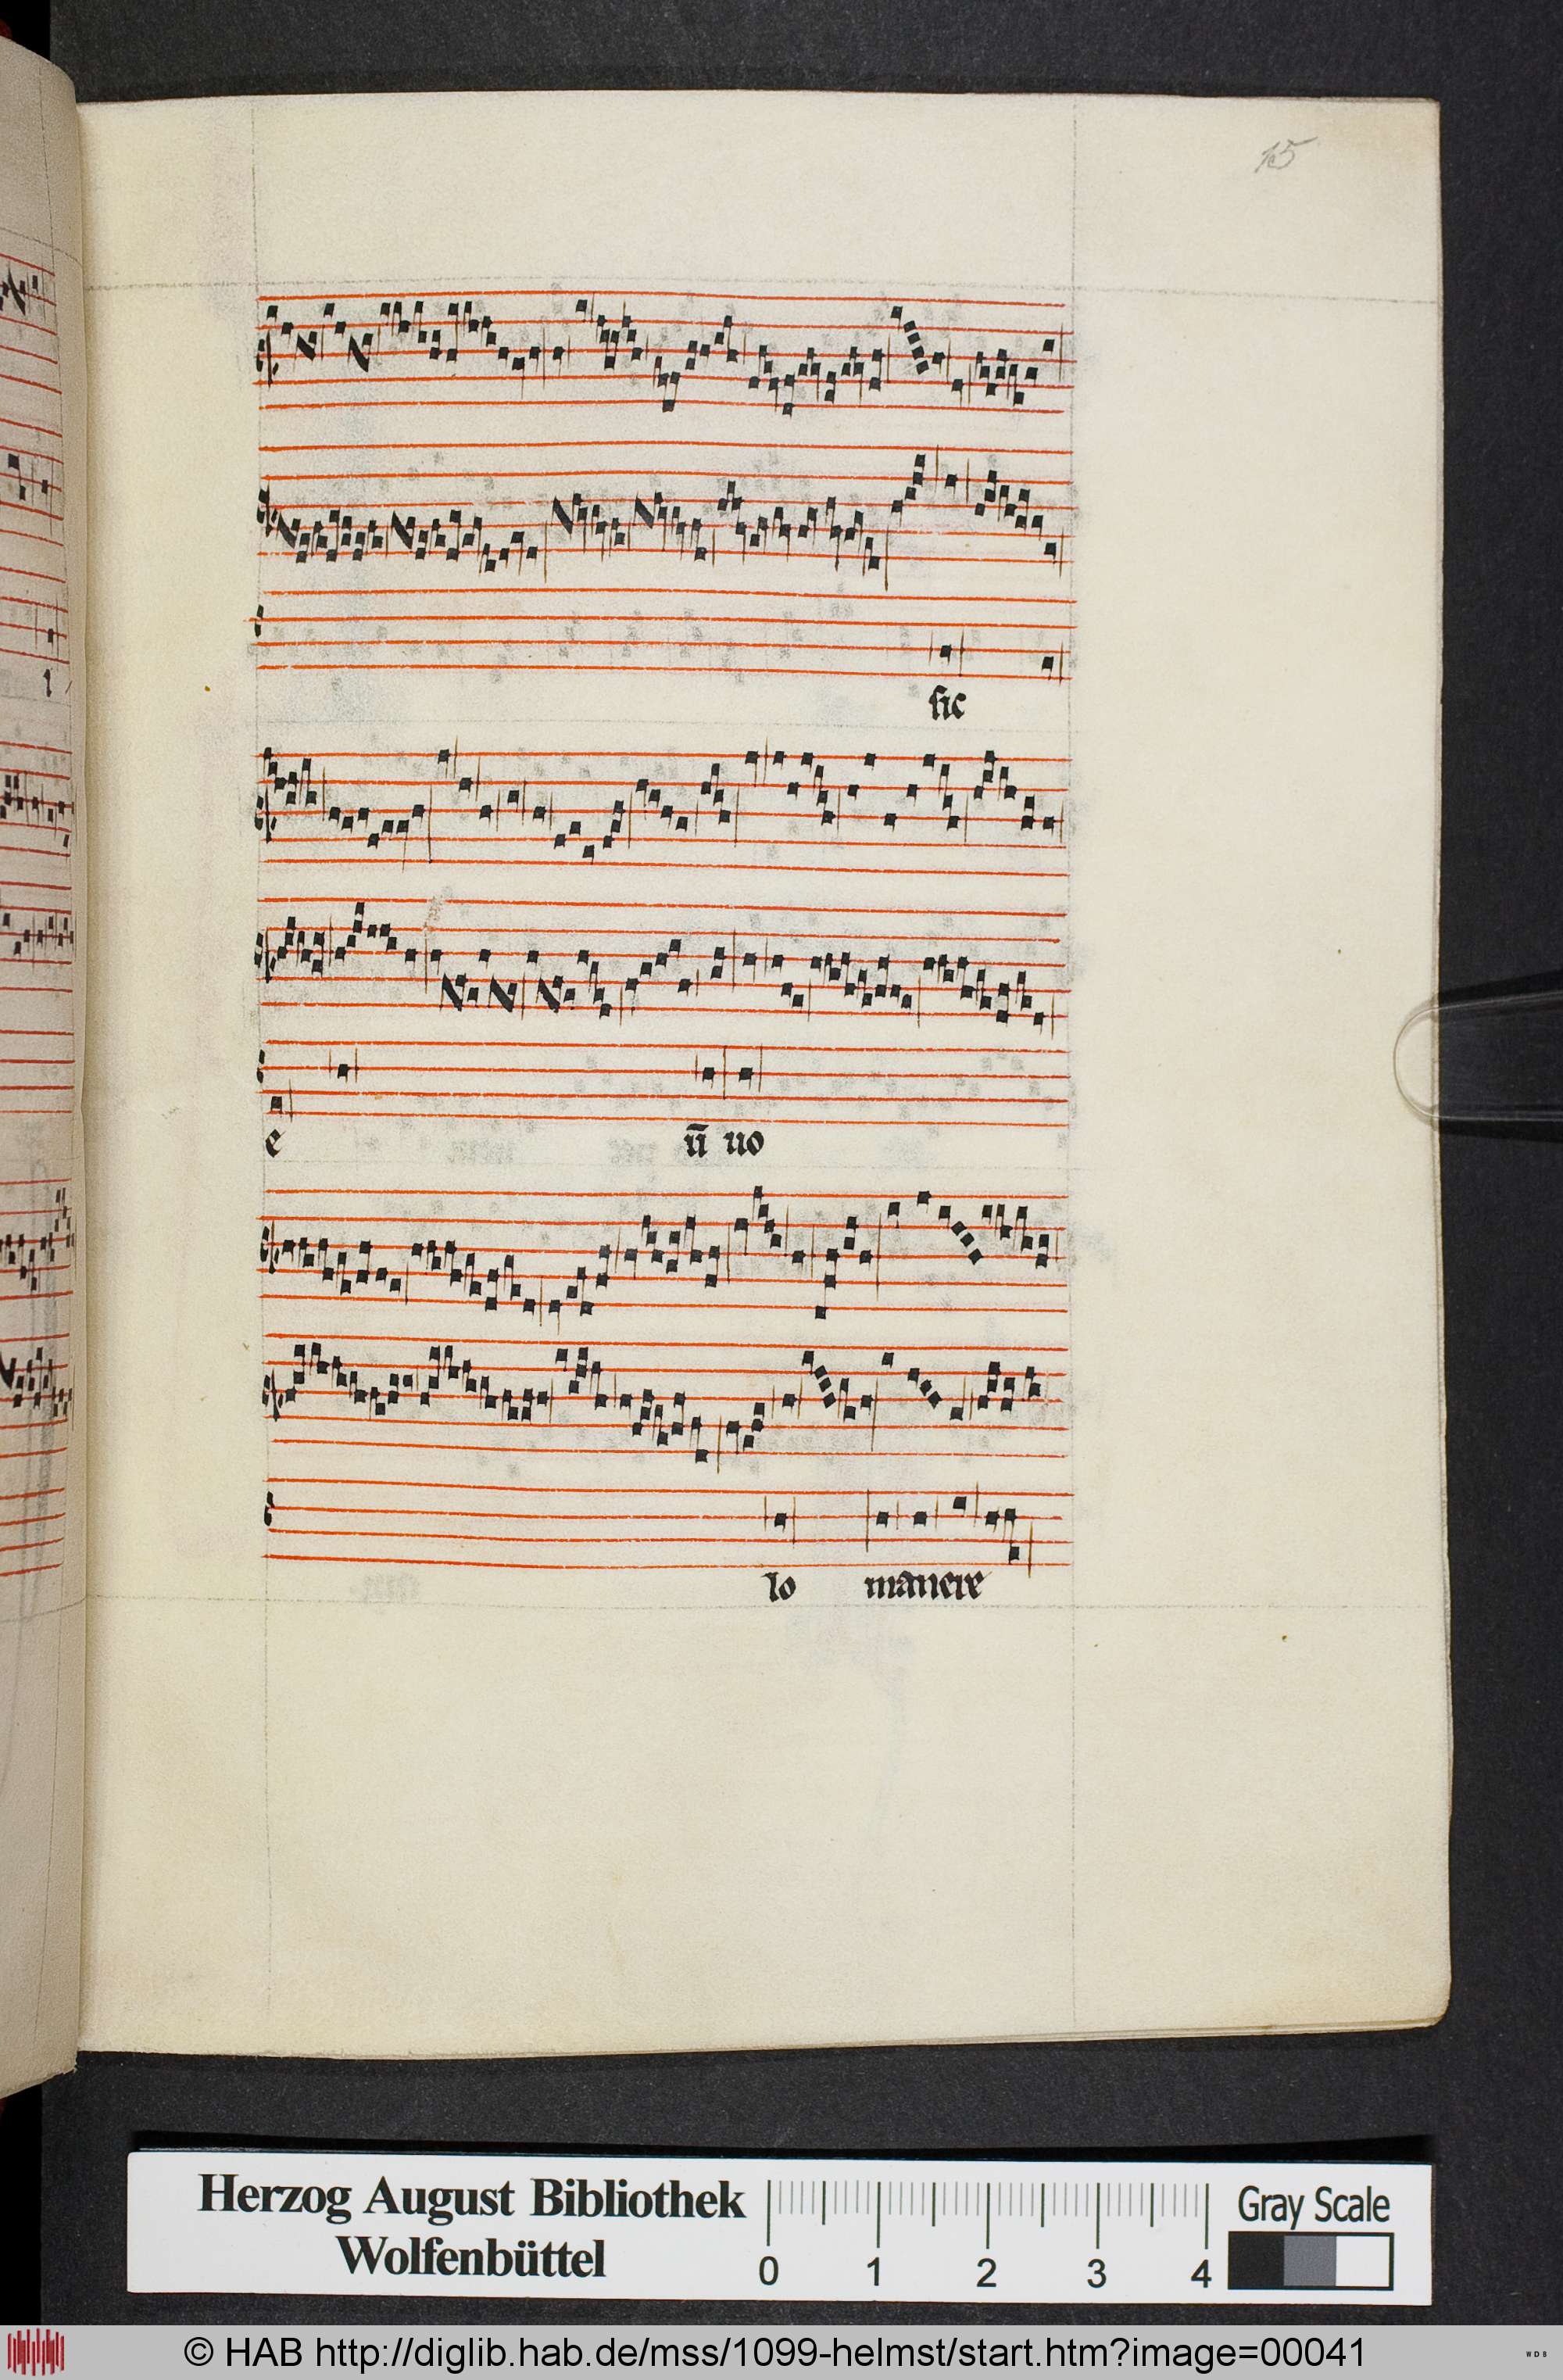 15
sic
e ū uo
lo manere
Herzog August Bibliothek
Wolfenbüttel
0 1 2 3 4
Gray Scale
© HAB http://diglib.hab.de/mss/1099-helmst/start.htm?image=00041
WDB